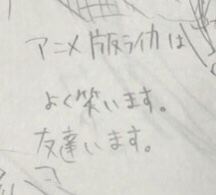 アニメ版ライカは
よく笑います。
友達います。